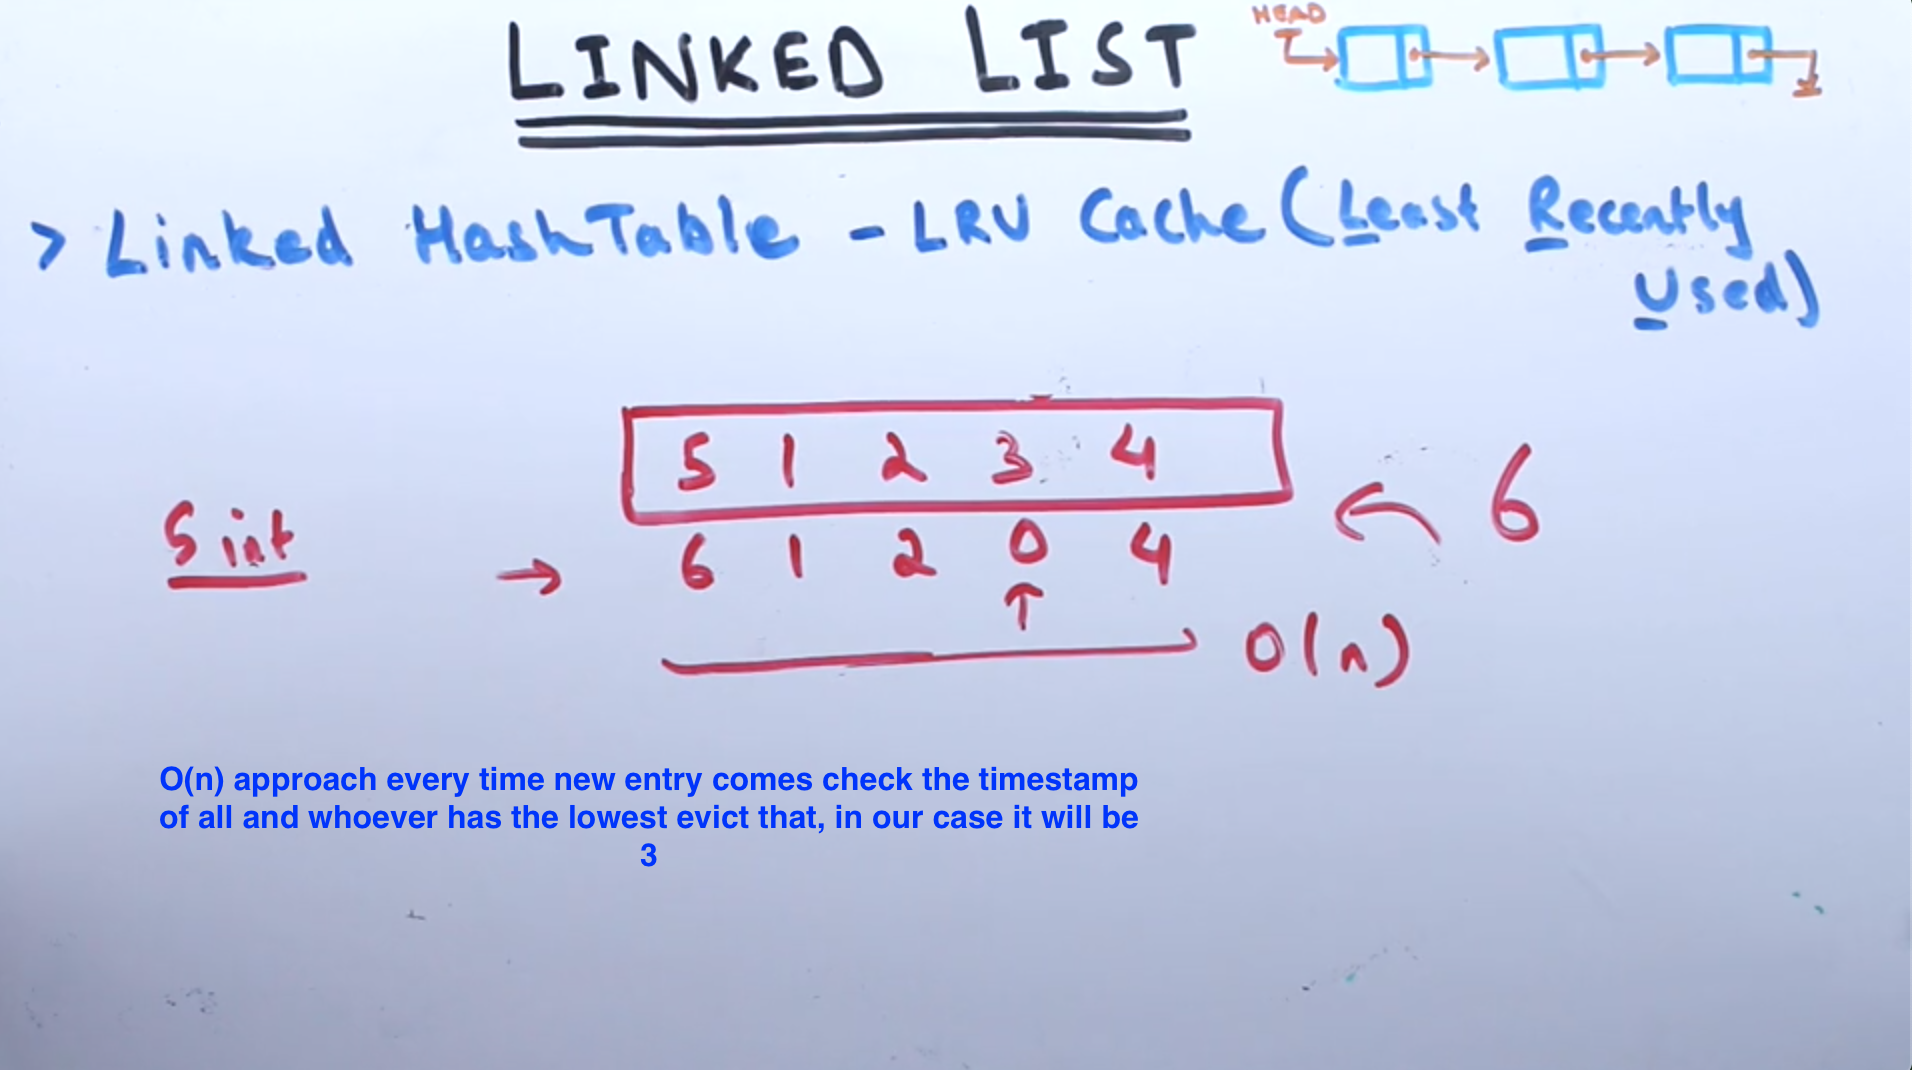 LINKED LIST
HEAD
> Linked HashTable - LRU Cache (Least Recently
Used)
5 1 2 3 4
6
5 int
→ 6 1 2 0 4
↑
O(n)
O(n) approach every time new entry comes check the timestamp
of all and whoever has the lowest evict that, in our case it will be
3